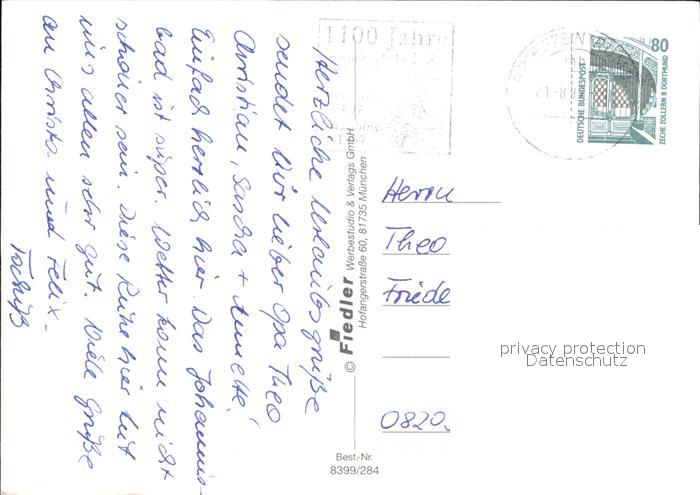 Herzliche Urlaubsgrüße
sendet Dir lieber Opa Theo
Christian, Sascha + Annette!
Einfach herrlich hier. Das Johannis-
bad ist super. Wetter kann nicht
schöner sein. Diese Ruhe hier tut
uns allen sehr gut. Viele Grüße
an Christa und Felix.
Tschüß
1100 Jahre
80
DEUTSCHE BUNDESPOST
ZECHE ZOLLERN II DORTMUND
© Fiedler Werbestudio & Verlags GmbH
Hofangerstraße 60, 81735 München
Herrn
Theo
Friede
0820
privacy protection
Datenschutz
Best.-Nr.
8399/284